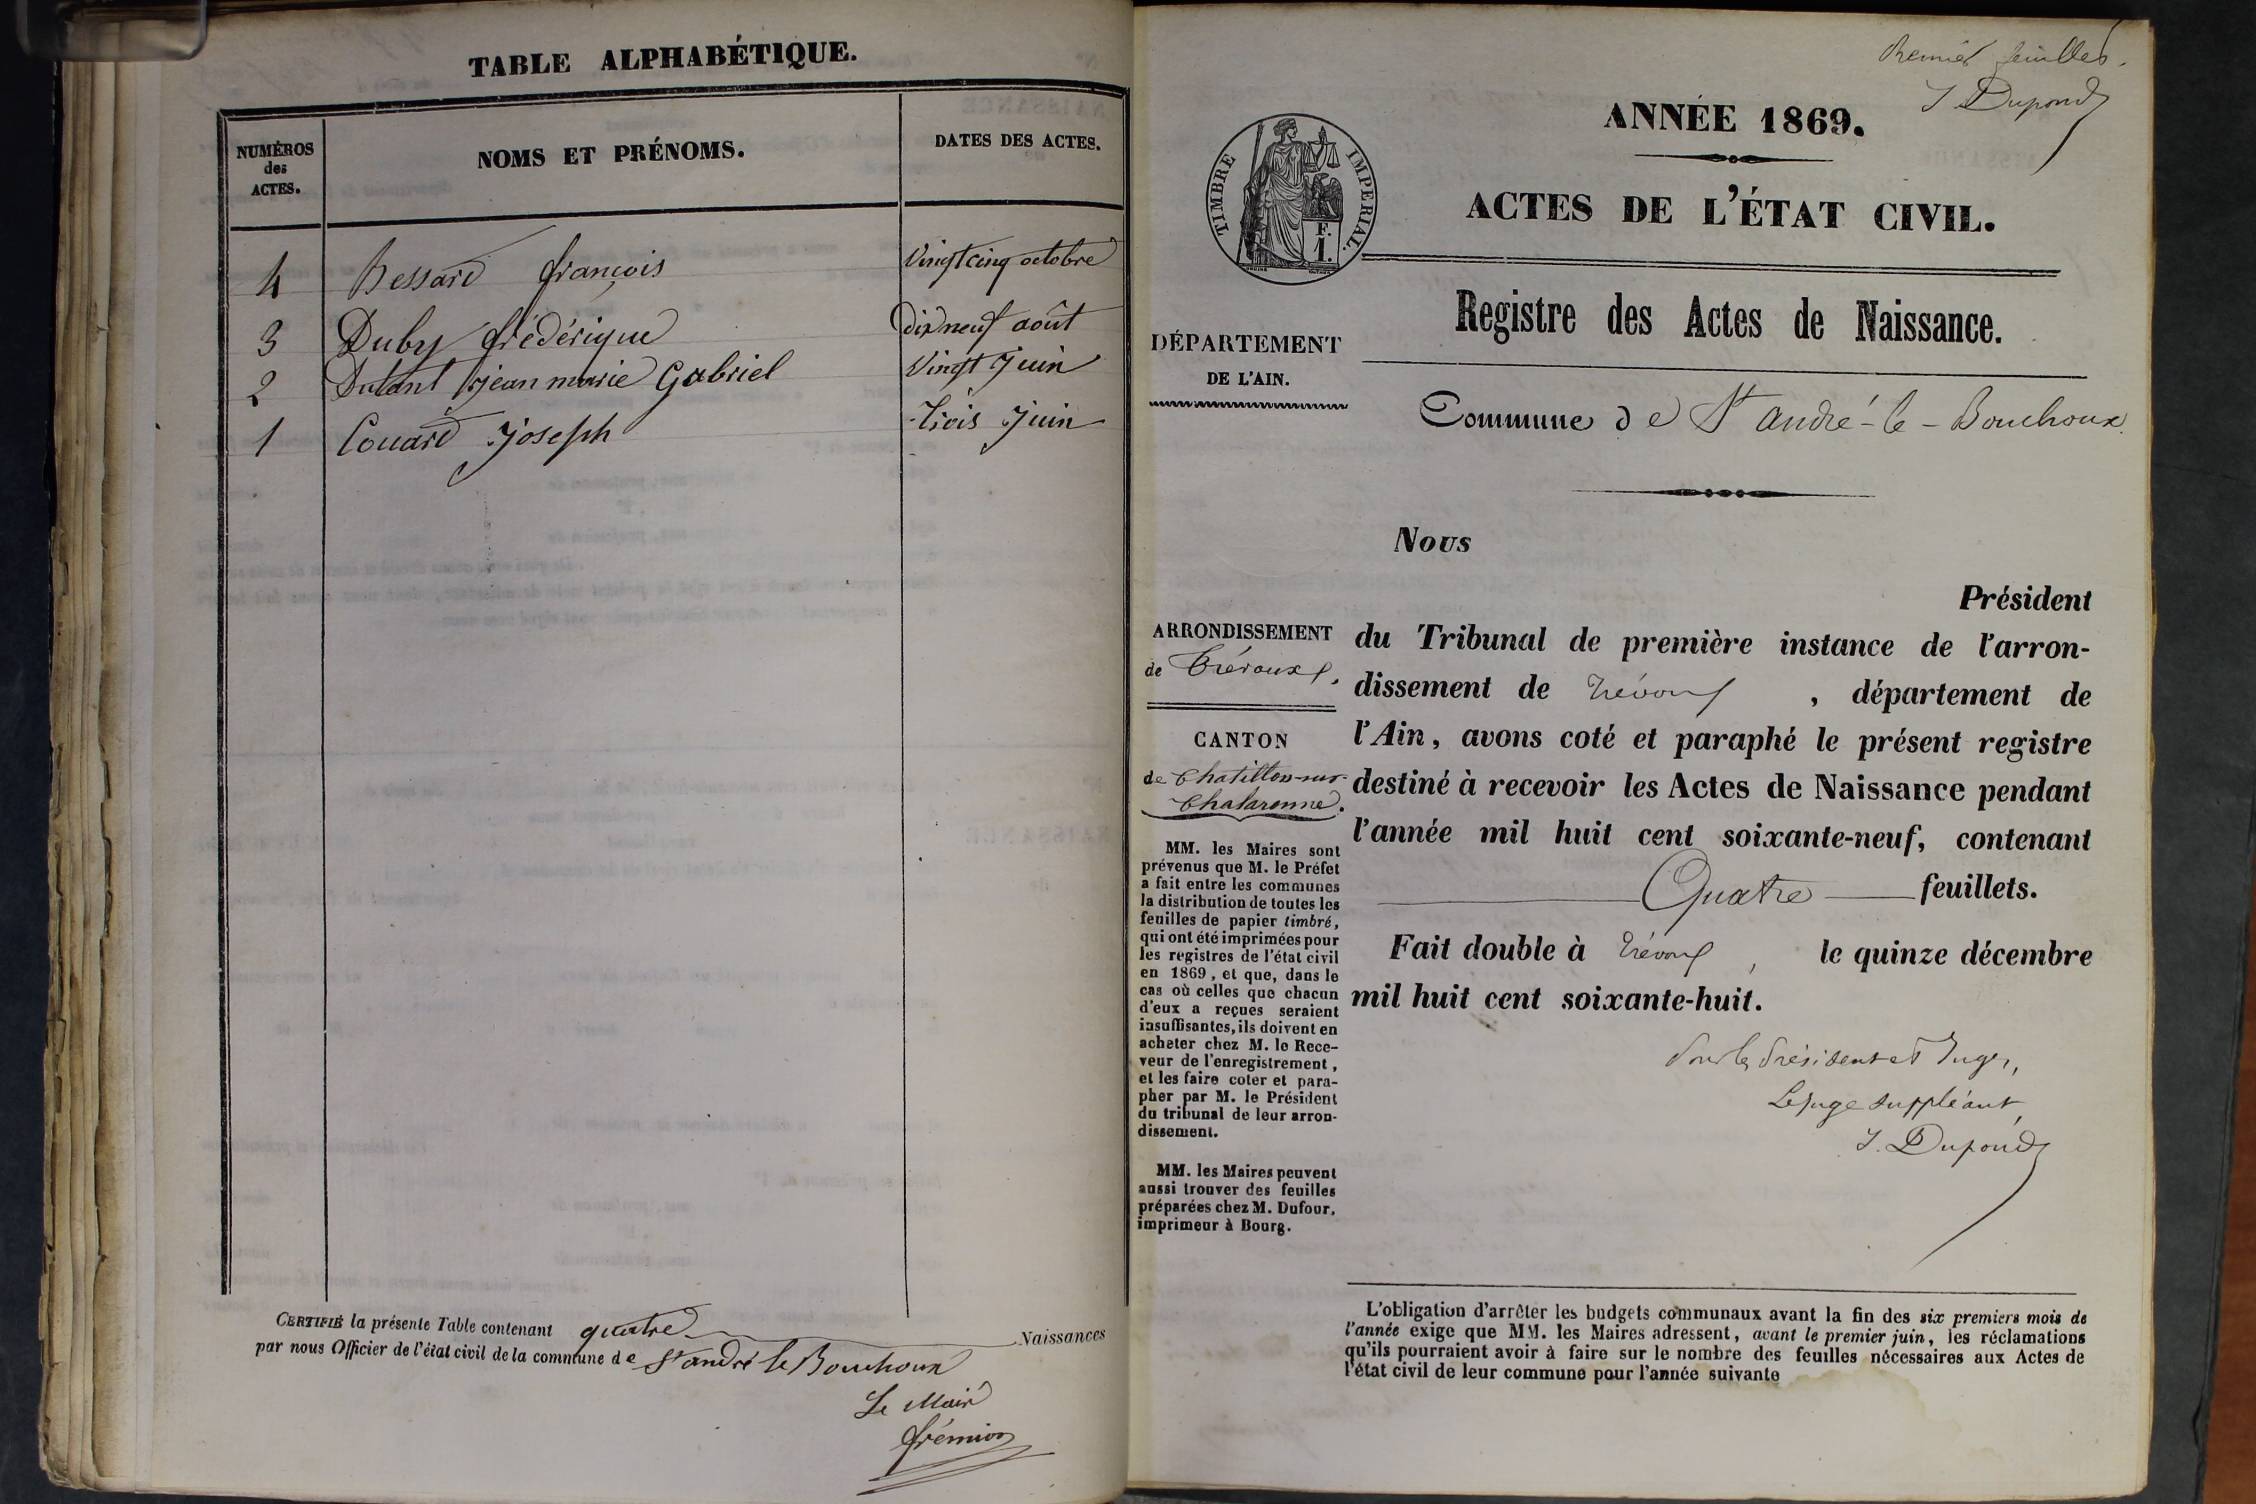 TABLE ALPHABÉTIQUE.
NUMÉROS des ACTES.
NOMS ET PRÉNOMS.
DATES DES ACTES.
4 Bessard françois Vingt cinq octobre
3 Duby frédérique Dix neuf août
2 Dutant jean marie Gabriel Vingt Juin
1 Couard Joseph trois Juin
CERTIFIÉ la présente Table contenant quatre Naissances
par nous Officier de l'état civil de la commune de St andré le Bouchoux
Le Mair
frémion
Premier feuillet.
J. Dupond
ANNÉE 1869.
TIMBRE IMPERIAL.
F.
1.
ACTES DE L'ÉTAT CIVIL.
Registre des Actes de Naissance.
DÉPARTEMENT
DE L'AIN.
Commune de St André-le-Bouchoux
ARRONDISSEMENT
de Trévoux.
CANTON
de Chatillon-sur-
Chalaronne.
MM. les Maires sont
prévenus que M. le Préfet
a fait entre les communes
la distribution de toutes les
feuilles de papier timbré,
qui ont été imprimées pour
les registres de l'état civil
en 1869, et que, dans le
cas où celles que chacun
d'eux a reçues seraient
insuffisantes, ils doivent en
acheter chez M. le Rece-
veur de l'enregistrement,
et les faire coter et para-
pher par M. le Président
du tribunal de leur arron-
dissement.
MM. les Maires peuvent
aussi trouver des feuilles
préparées chez M. Dufour,
imprimeur à Bourg.
Nous
Président
du Tribunal de première instance de l'arron-
dissement de Trévoux, département de
l'Ain, avons coté et paraphé le présent registre
destiné à recevoir les Actes de Naissance pendant
l'année mil huit cent soixante-neuf, contenant
Quatre feuillets.
Fait double à Trévoux, le quinze décembre
mil huit cent soixante-huit.
Pour les Président et Juges,
Le juge suppléant,
J. Dupond
L'obligation d'arrêter les budgets communaux avant la fin des six premiers mois de
l'année exige que MM. les Maires adressent, avant le premier juin, les réclamations
qu'ils pourraient avoir à faire sur le nombre des feuilles nécessaires aux Actes de
l'état civil de leur commune pour l'année suivante